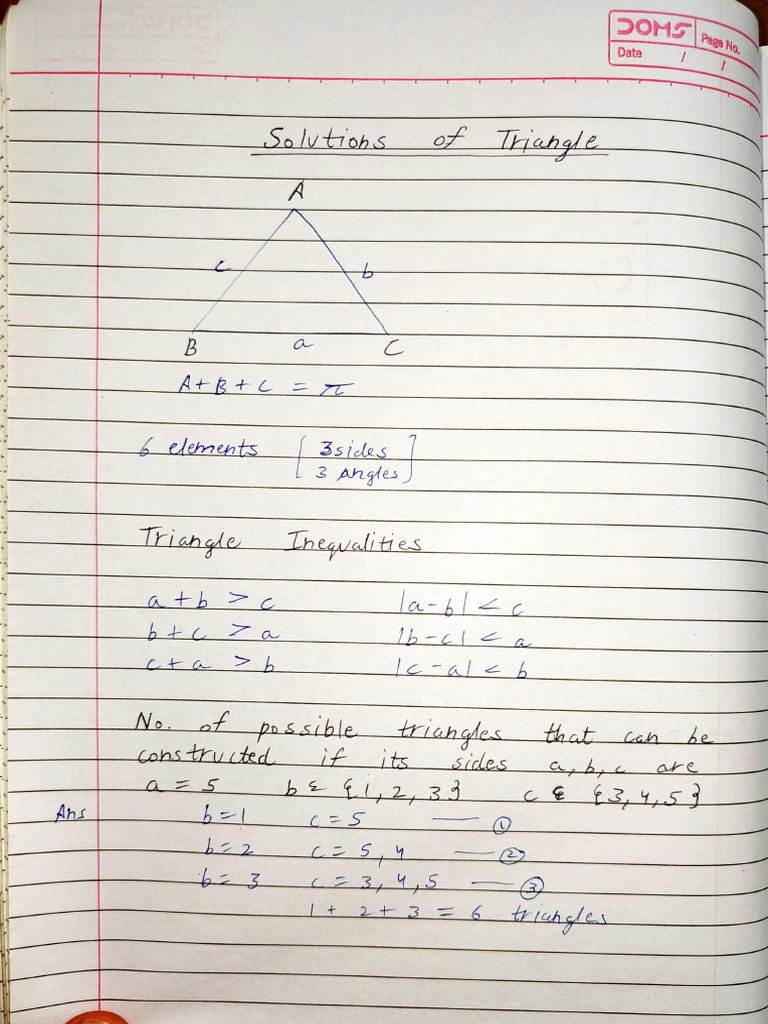 DOMS
Page No.
Date / /
Solutions of Triangle
A
c b
B a C
A+B+C = π
6 elements [3 sides
3 Angles]
Triangle Inequalities
a+b > c |a-b| < c
b+c > a |b-c| < a
c+a > b |c-a| < b
No. of possible triangles that can be
constructed if its sides a, b, c are
a = 5 b ε {1, 2, 3} c ε {3, 4, 5}
Ans b=1 c=5 — ①
b=2 c= 5, 4 — ②
b= 3 c= 3, 4, 5 — ③
1 + 2 + 3 = 6 triangles